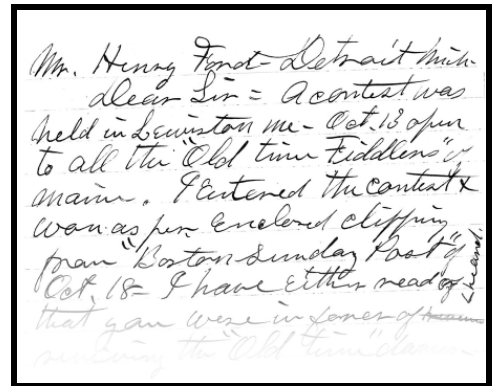 Mr. Henry Ford - Detroit Mich -
Dear Sir = A contest was
held in Lewiston Me - Oct. 13 open
to all the "Old time Fiddlers" of
Maine. I Entered the contest &
won as per Enclosed clipping
from "Boston Sunday Post" of
Oct. 18 - I have Either read or heard
that you were in favor of
reviving the "Old time" dances -